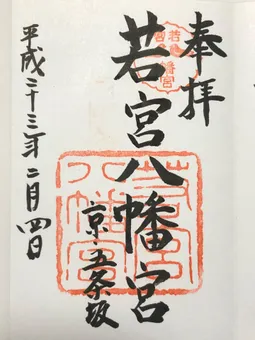 奉拝
若宮八幡宮
京・五条坂
平成二十三年二月四日
若宮八幡宮